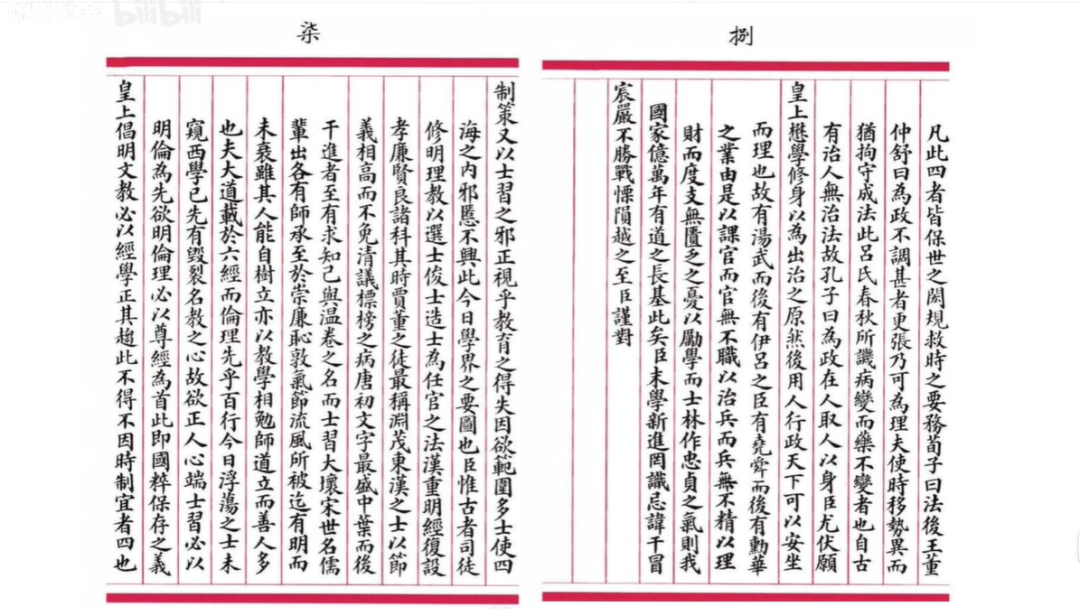 bilibili
柒
制策又以士習之邪正視乎教育之得失因欲範圍多士使四
海之內邪慝不興此今日學界之要圖也臣惟古者司徒
修明理教以選士俊士造士為任官之法漢重明經復設
孝廉賢良諸科其時賈董之徒最稱淵茂東漢之士以節
義相高而不免清議標榜之病唐初文字最盛中葉而後
干進者至有求知己與温卷之名而士習大壞宋世名儒
輩出各有師承至於崇廉恥敦氣節流風所被迄有明而
未衰雖其人能自樹立亦以教學相勉師道立而善人多
也夫大道載於六經而倫理先乎百行今日浮蕩之士未
窺西學已先有毀裂名教之心故欲正人心端士習必以
明倫為先欲明倫理必以尊經為首此即國粹保存之義
皇上倡明文教必以經學正其趨此不得不因時制宜者四也
捌
凡此四者皆保世之閎規救時之要務荀子曰法後王董
仲舒曰為政不調甚者更張乃可為理夫使時移勢異而
猶拘守成法此呂氏春秋所譏病變而藥不變者也自古
有治人無治法故孔子曰為政在人取人以身臣尤伏願
皇上懋學修身以為出治之原然後用人行政天下可以安坐
而理也故有湯武而後有伊呂之臣有堯舜而後有勳華
之業由是以課官而官無不職以治兵而兵無不精以理
財而度支無匱乏之憂以勵學而士林作忠貞之氣則我
國家億萬年有道之長基此矣臣末學新進罔識忌諱干冒
宸嚴不勝戰慄隕越之至臣謹對